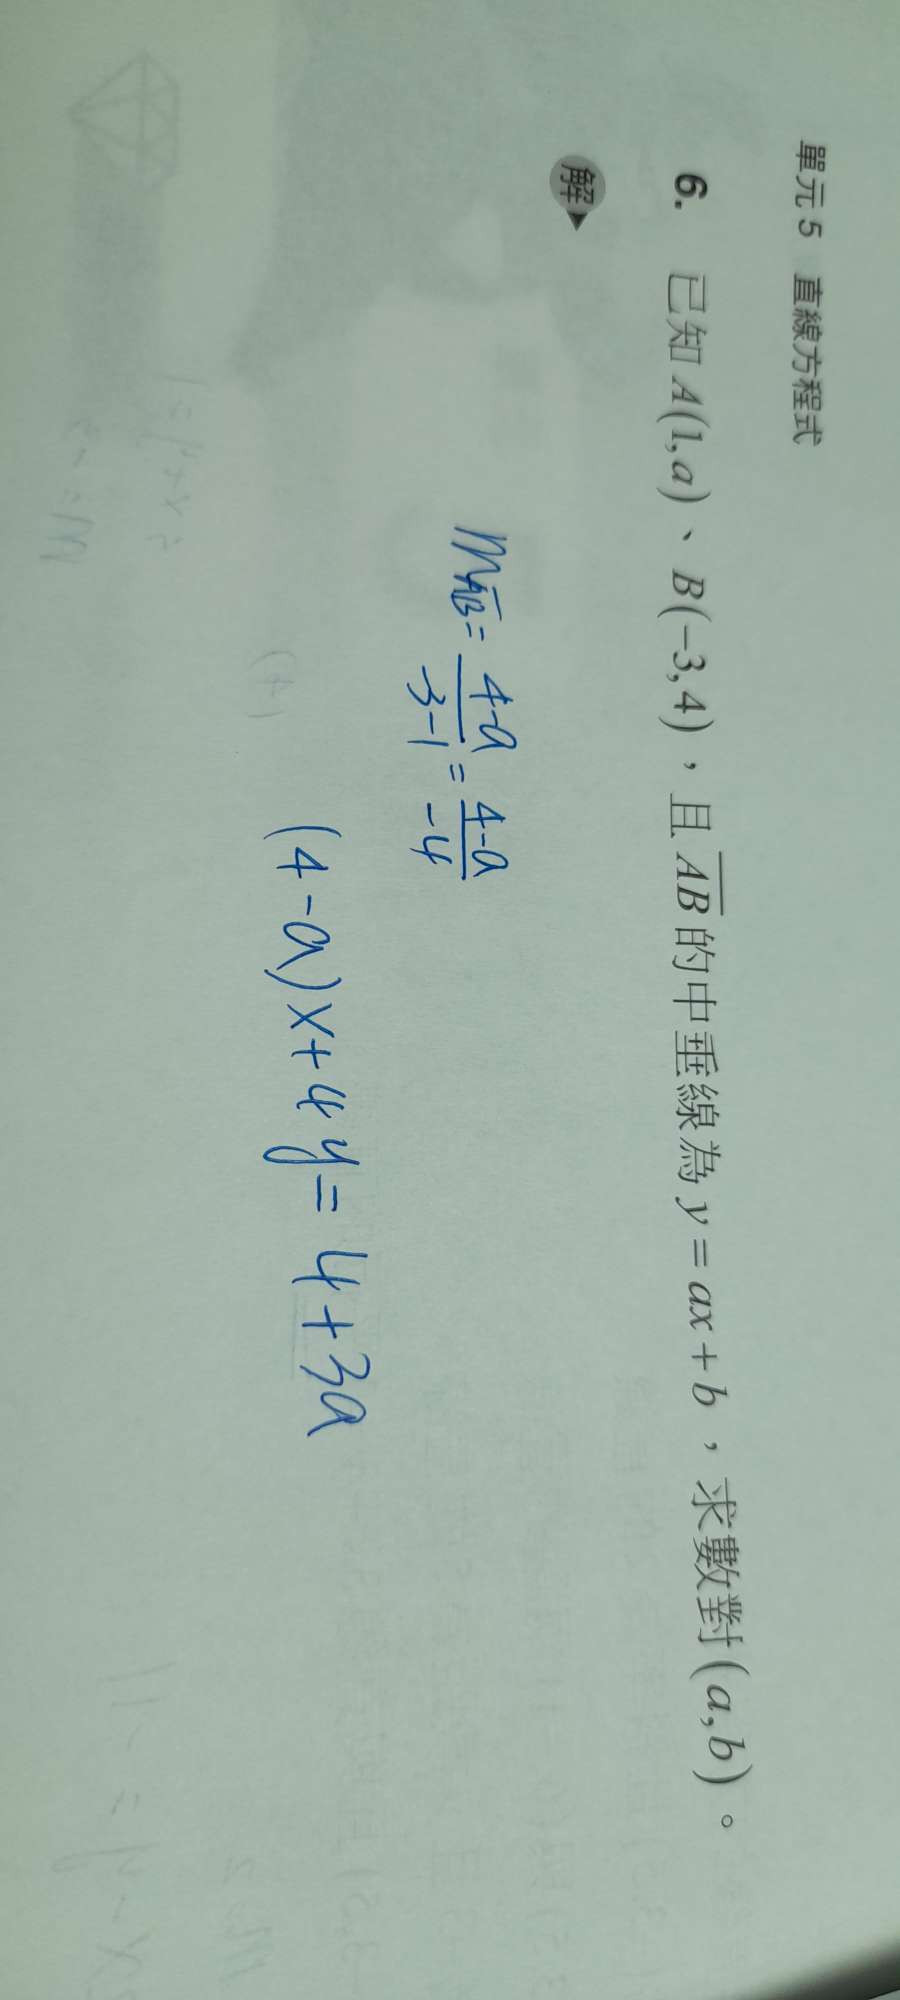 單元 5 直線方程式
6. 已知 A(1,a)、B(−3,4),且 \overline{AB} 的中垂線為 y = ax + b,求數對 (a,b)。
解
m_{\overline{AB}} = \frac{4-a}{-3-1} = \frac{4-a}{-4}
(4-a)x+4y=4+3a